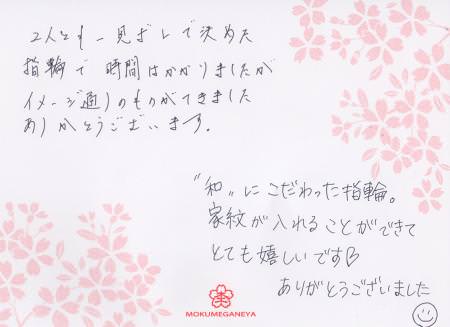 2人とも一見ぼれで決めた
指輪で時間はかかりましたが
イメージ通りのものができました
ありがとうございます。
"和"にこだわった指輪。
家紋が入れることができて
とても嬉しいです♡
ありがとうございました
MOKUMEGANEYA